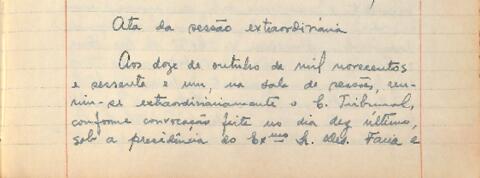 Ata da sessão extraordinária
Aos doze de outubro de mil novecentos
e sessenta e um, na sala de sessões, reu-
niu-se extraordinàriamente o E. Tribunal,
conforme convocação feita no dia dez último,
sob a presidência do Exmo Sr. des. Faria e